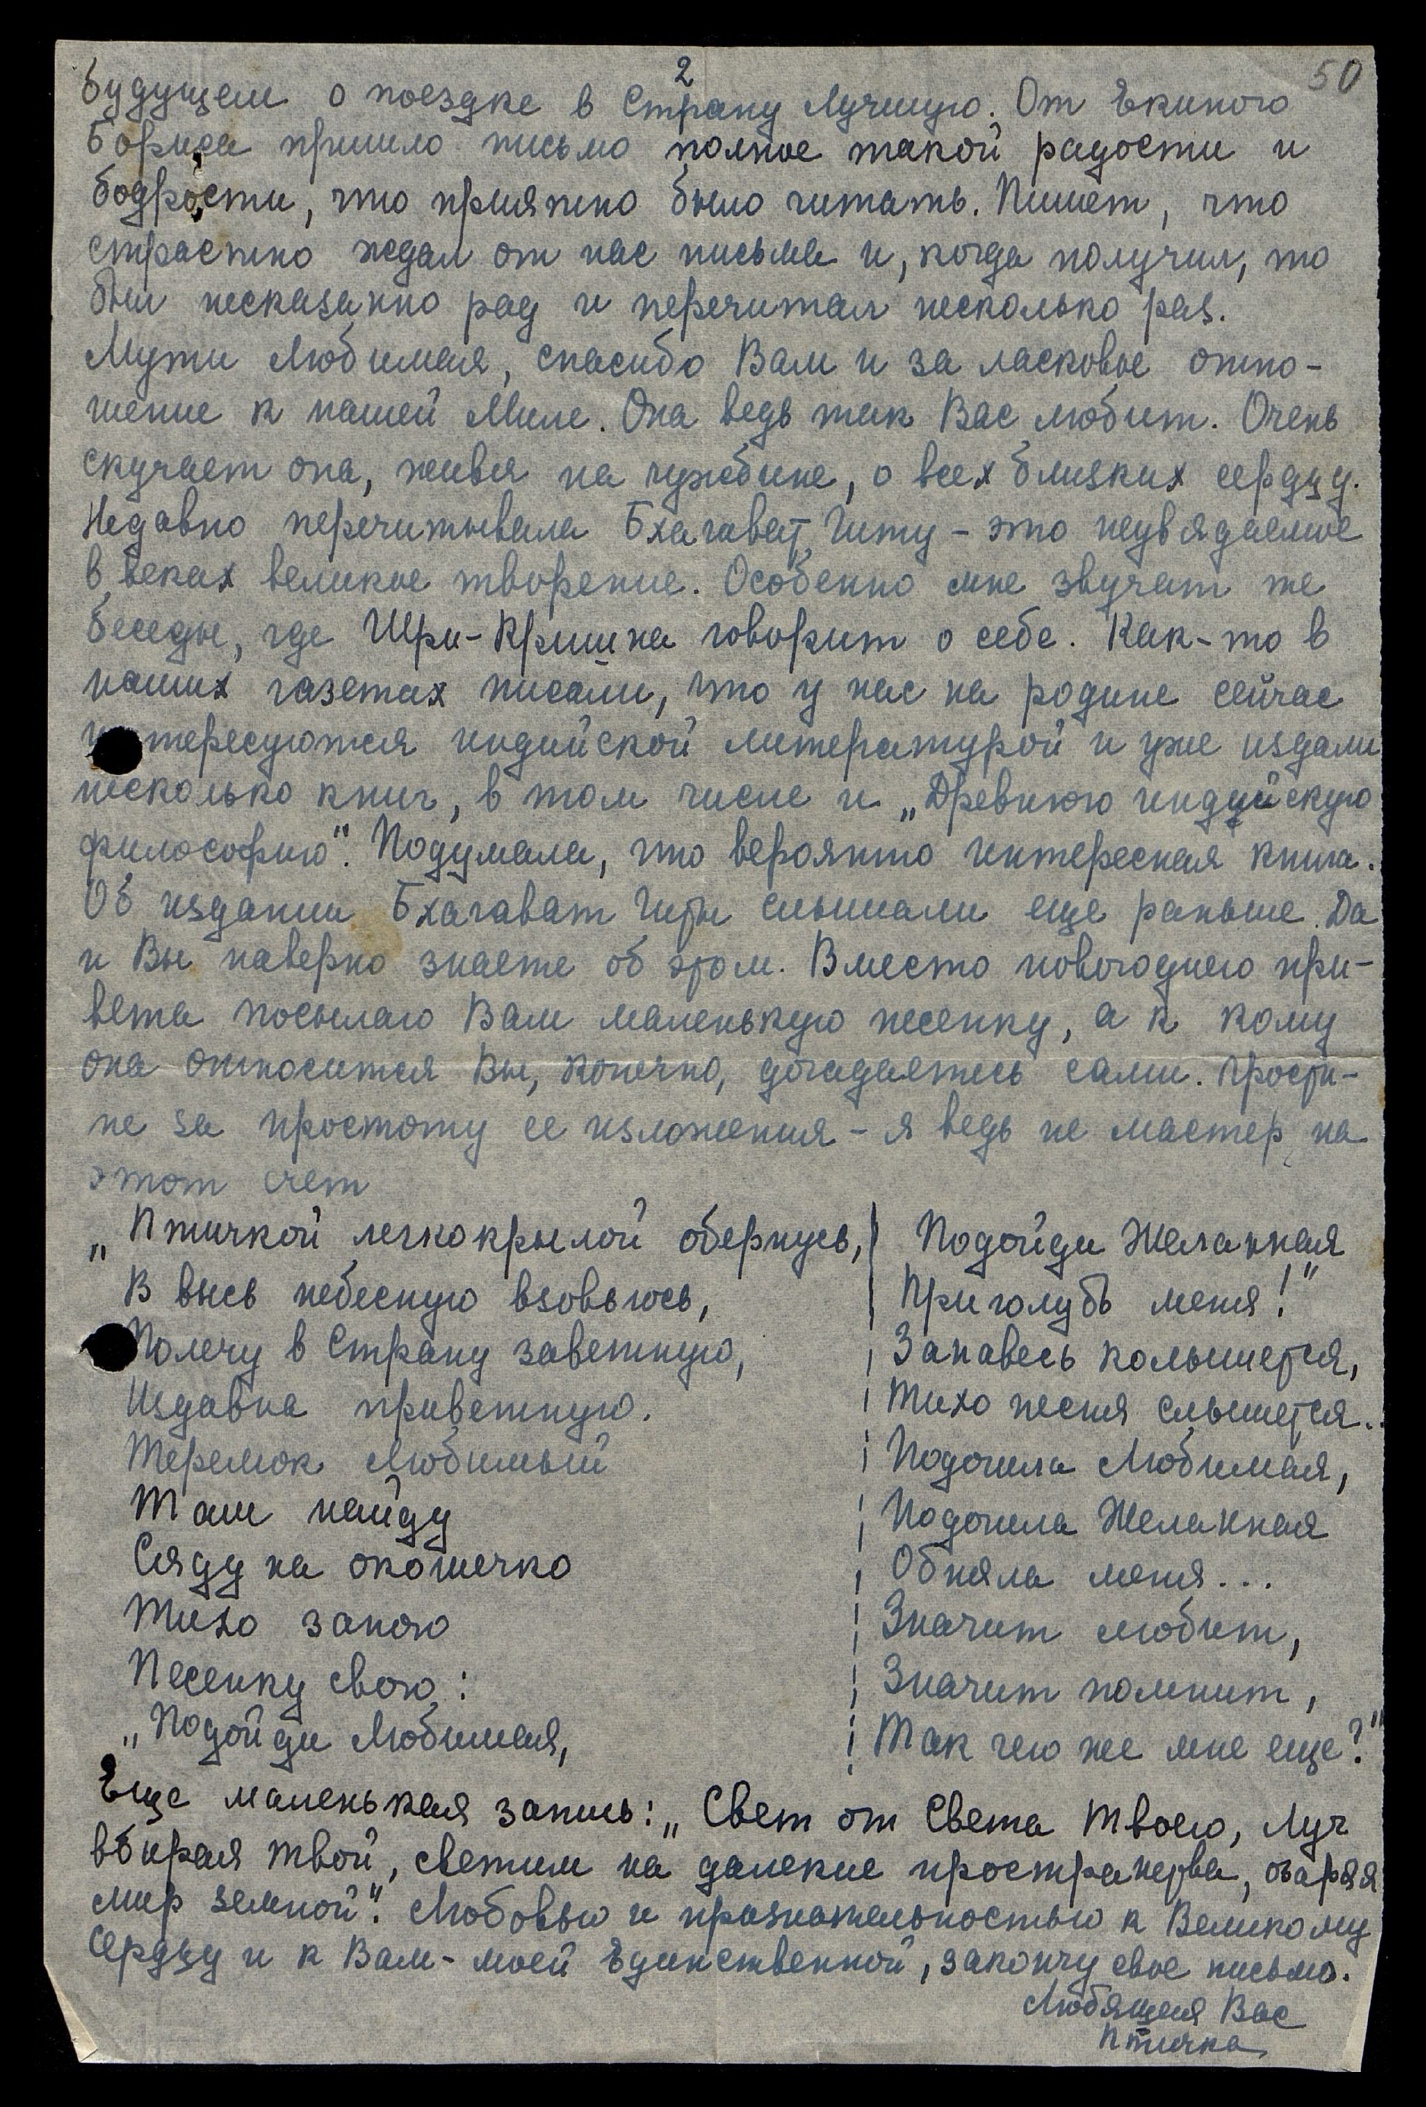 2
50
будущем о поездке в Страну Лучшую. От Екиного
Бориса пришло письмо полное такой радости и
бодрости, что приятно было читать. Пишет, что
страстно ждал от нас письма и, когда получил, то
был несказанно рад и перечитал несколько раз.
Мути Любимая, спасибо Вам и за ласковое отно-
шение к нашей Миле. Она ведь так Вас любит. Очень
скучает она, живя на чужбине, о всех близких сердцу.
Недавно перечитывала Бхагават Гиту - это неувядаемое
в веках великое творение. Особенно мне звучат те
беседы, где Шри-Кришна говорит о себе. Как-то в
наших газетах писали, что у нас на родине сейчас
интересуются индийской литературой и уже издали
несколько книг, в том числе и „Древнюю индийскую
философию". Подумала, что вероятно интересная книга.
Об издании Бхагават Гиты слышали еще раньше. Да
и Вы наверно знаете об этом. Вместо новогоднего при-
вета посылаю Вам маленькую песенку, а к кому
она относится Вы, конечно, догадаетесь сами. Прости-
те за простоту ее изложения - я ведь не мастер на
этот счет
„Птичкой легкокрылой обернусь,
В высь небесную взовьюсь,
Полечу в Страну заветную,
Издавна приветную.
Теремок Любимый
Там найду
Сяду на окошечко
Тихо запою
Песенку свою:
„Подойди Любимая,
Подойди Желанная
Приголубь меня!"
Занавесь колышется,
Тихо песня слышится..
Подошла Любимая,
Подошла Желанная
Обняла меня...
Значит любит,
Значит помнит,
Так чего же мне еще?"
Еще маленькая запись: „Свет от Света Твоего, Луч
вбирая твой, светим на далекие пространства, озаряя
мир земной". Любовью и признательностью к Великому
Сердцу и к Вам - моей Единственной, закончу свое письмо.
Любящая Вас
Птичка